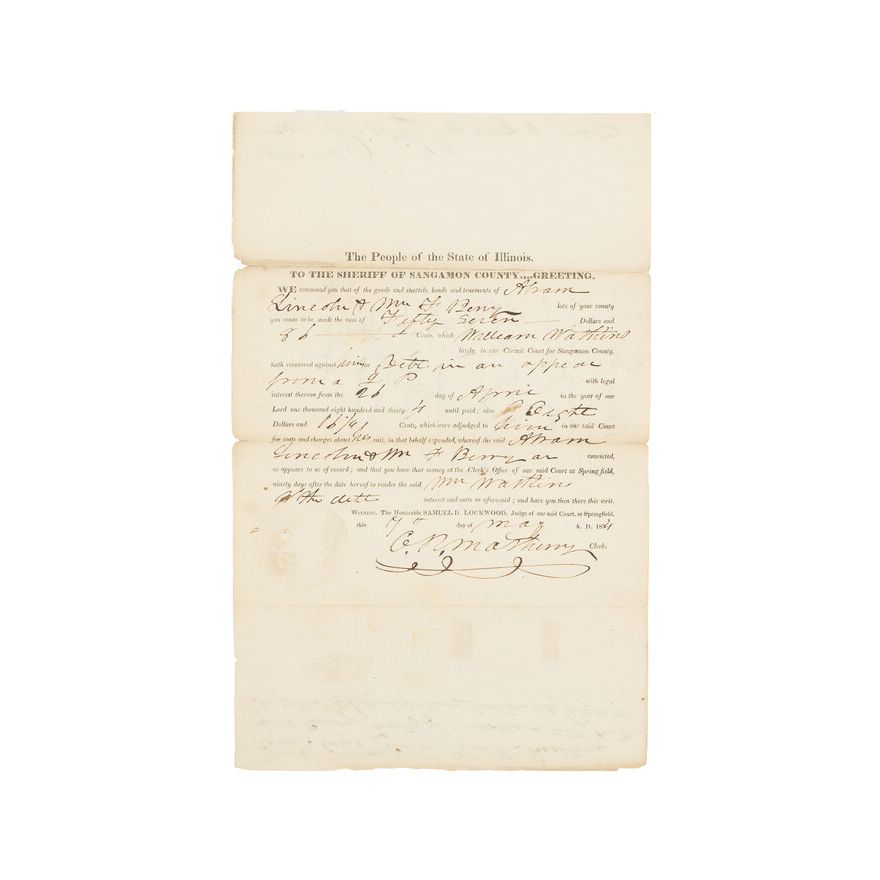 The People of the State of Illinois.
TO THE SHERIFF OF SANGAMON COUNTY....GREETING.
WE command you that of the goods and chattels, lands and tenements of Abram
Lincoln & Wm F Berry late of your county
you cause to be made the sum of Fifty Seven Dollars and
86 Cents, which William Watkins
lately, in our Circuit Court for Sangamon County,
hath recovered against him for Debt in an appeal
from a J P with legal
interest thereon from the 26 day of April in the year of our
Lord one thousand eight hundred and thirty-4 until paid; also Eight
Dollars and Cents, which were adjudged to him in our said Court
for costs and charges about his suit, in that behalf expended, whereof the said Abram
Lincoln & Wm F Berry ar convicted,
as appears to us of record; and that you have that money at the Clerk's Office of our said Court at Springfield,
ninety days after the date hereof to render the said Wm Watkins
debt interest and costs as aforesaid; and have you then there this writ.
Witness, The Honorable SAMUEL D. LOCKWOOD, Judge of our said Court, at Springfield,
this 7th day of May A. D. 1834
C. R. Matheny Clerk.